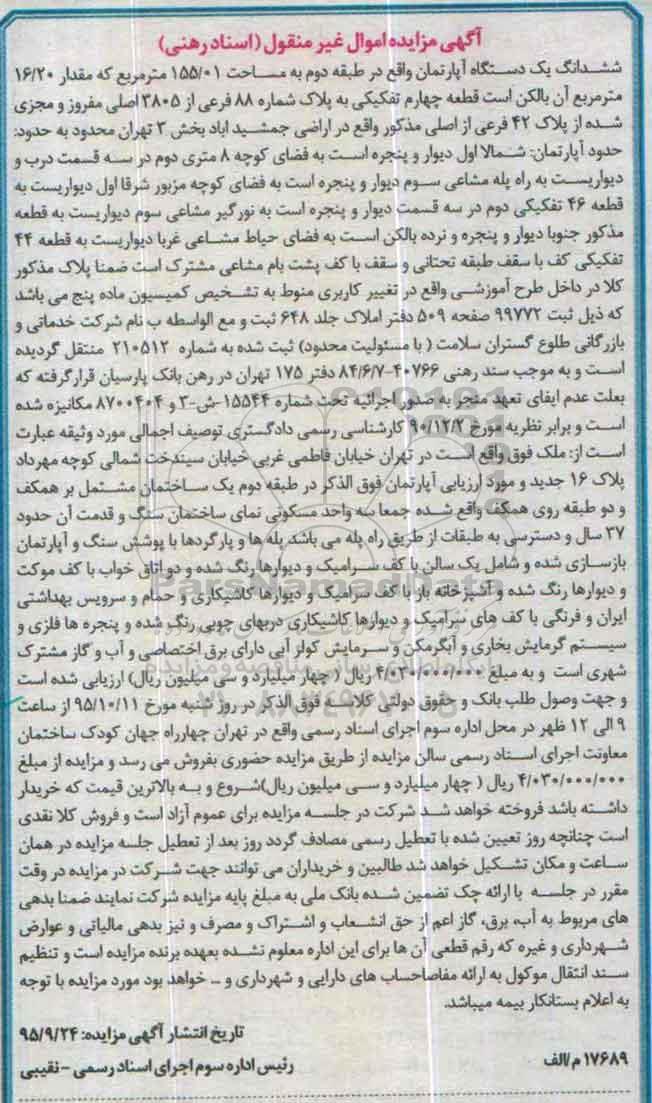 آگهی مزایده اموال غیر منقول (اسناد رهنی)
ششدانگ یک دستگاه آپارتمان واقع در طبقه دوم به مساحت ۱۵۵/۰۱ مترمربع که مقدار ۱۶/۲۰
مترمربع آن بالکن است قطعه چهارم تفکیکی به پلاک شماره ۸۸ فرعی از ۳۸۰۵ اصلی مفروز و مجزی
شده از پلاک ۴۲ فرعی از اصلی مذکور واقع در اراضی جمشید اباد بخش ۳ تهران محدود به حدود:
حدود آپارتمان: شمالا اول دیوار و پنجره است به فضای کوچه ۸ متری دوم در سه قسمت درب و
دیواریست به راه پله مشاعی سوم دیوار و پنجره است به فضای کوچه مزبور شرقا اول دیواریست به
قطعه ۴۶ تفکیکی دوم در سه قسمت دیوار و پنجره است به نورگیر مشاعی سوم دیواریست به قطعه
مذکور جنوبا دیوار و پنجره و نرده بالکن است به فضای حیاط مشاعی غربا دیواریست به قطعه ۴۴
تفکیکی کف با سقف طبقه تحتانی و سقف با کف پشت بام مشاعی مشترک است ضمنا پلاک مذکور
کلا در داخل طرح آموزشی واقع در تغییر کاربری منوط به تشخیص کمیسیون ماده پنج می باشد
که ذیل ثبت ۹۹۷۷۲ صفحه ۵۰۹ دفتر املاک جلد ۶۴۸ ثبت و مع الواسطه ب نام شرکت خدماتی و
بازرگانی طلوع گستران سلامت ( با مسئولیت محدود) ثبت شده به شماره ۲۱۰۵۱۲ منتقل گردیده
است و به موجب سند رهنی ۴۰۷۶۶-۸۴/۶/۷ دفتر ۱۷۵ تهران در رهن بانک پارسیان قرارگرفته که
بعلت عدم ایفای تعهد منجر به صدور اجرائیه تحت شماره ۱۵۵۴۴-ش-۳ و ۸۷۰۰۴۰۴ مکانیزه شده
است و برابر نظریه مورخ ۹۰/۱۲/۲ کارشناسی رسمی دادگستری توصیف اجمالی مورد وثیقه عبارت
است از: ملک فوق واقع است در تهران خیابان فاطمی غربی خیابان سیندخت شمالی کوچه مهرداد
پلاک ۱۶ جدید و مورد ارزیابی آپارتمان فوق الذکر در طبقه دوم یک ساختمان مشتمل بر همکف
و دو طبقه روی همکف واقع شده جمعا سه واحد مسکونی نمای ساختمان سنگ و قدمت آن حدود
۳۷ سال و دسترسی به طبقات از طریق راه پله می باشد پله ها و پارگردها با پوشش سنگ و آپارتمان
بازسازی شده و شامل یک سالن با کف سرامیک و دیوارها رنگ شده و دو اتاق خواب با کف موکت
و دیوارها رنگ شده و آشپزخانه باز با کف سرامیک و دیوارها کاشیکاری و حمام و سرویس بهداشتی
ایران و فرنگی با کف های سرامیک و دیوارها کاشیکاری دربهای چوبی رنگ شده و پنجره ها فلزی و
سیستم گرمایش بخاری و آبگرمکن و سرمایش کولر آبی دارای برق اختصاصی و آب و گاز مشترک
شهری است و به مبلغ ۴/۰۳۰/۰۰۰/۰۰۰ ریال ( چهار میلیارد و سی میلیون ریال) ارزیابی شده است
و جهت وصول طلب بانک و حقوق دولتی کلاسه فوق الذکر در روز شنبه مورخ ۹۵/۱۰/۱۱ از ساعت
۹ الی ۱۲ ظهر در محل اداره سوم اجرای اسناد رسمی واقع در تهران چهارراه جهان کودک ساختمان
معاونت اجرای اسناد رسمی سالن مزایده از طریق مزایده حضوری بفروش می رسد و مزایده از مبلغ
۴/۰۳۰/۰۰۰/۰۰۰ ریال ( چهار میلیارد و سی میلیون ریال)شروع و به بالاترین قیمت که خریدار
داشته باشد فروخته خواهد شد شرکت در جلسه مزایده برای عموم آزاد است و فروش کلا نقدی
است چنانچه روز تعیین شده با تعطیل رسمی مصادف گردد روز بعد از تعطیل جلسه مزایده در همان
ساعت و مکان تشکیل خواهد شد طالبین و خریداران می توانند جهت شرکت در مزایده در وقت
مقرر در جلسه با ارائه چک تضمین شده بانک ملی به مبلغ پایه مزایده شرکت نمایند ضمنا بدهی
های مربوط به آب، برق، گاز اعم از حق انشعاب و اشتراک و مصرف و نیز بدهی مالیاتی و عوارض
شهرداری و غیره که رقم قطعی آن ها برای این اداره معلوم نشده بعهده برنده مزایده است و تنظیم
سند انتقال موکول به ارائه مفاصاحساب های دارایی و شهرداری و ... خواهد بود مورد مزایده با توجه
به اعلام بستانکار بیمه میباشد.
تاریخ انتشار آگهی مزایده: ۹۵/۹/۲۴
۱۷۶۸۹ م/الف
رئیس اداره سوم اجرای اسناد رسمی - نقیبی
ParsNamadData